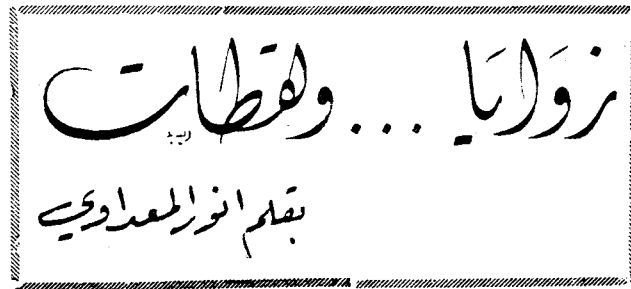 زَوَايَا ... ولقطات
بقلم انور المعداوي